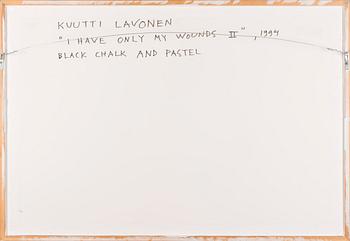 KUUTTI LAVONEN
"I HAVE ONLY MY WOUNDS II", 1994
BLACK CHALK AND PASTEL